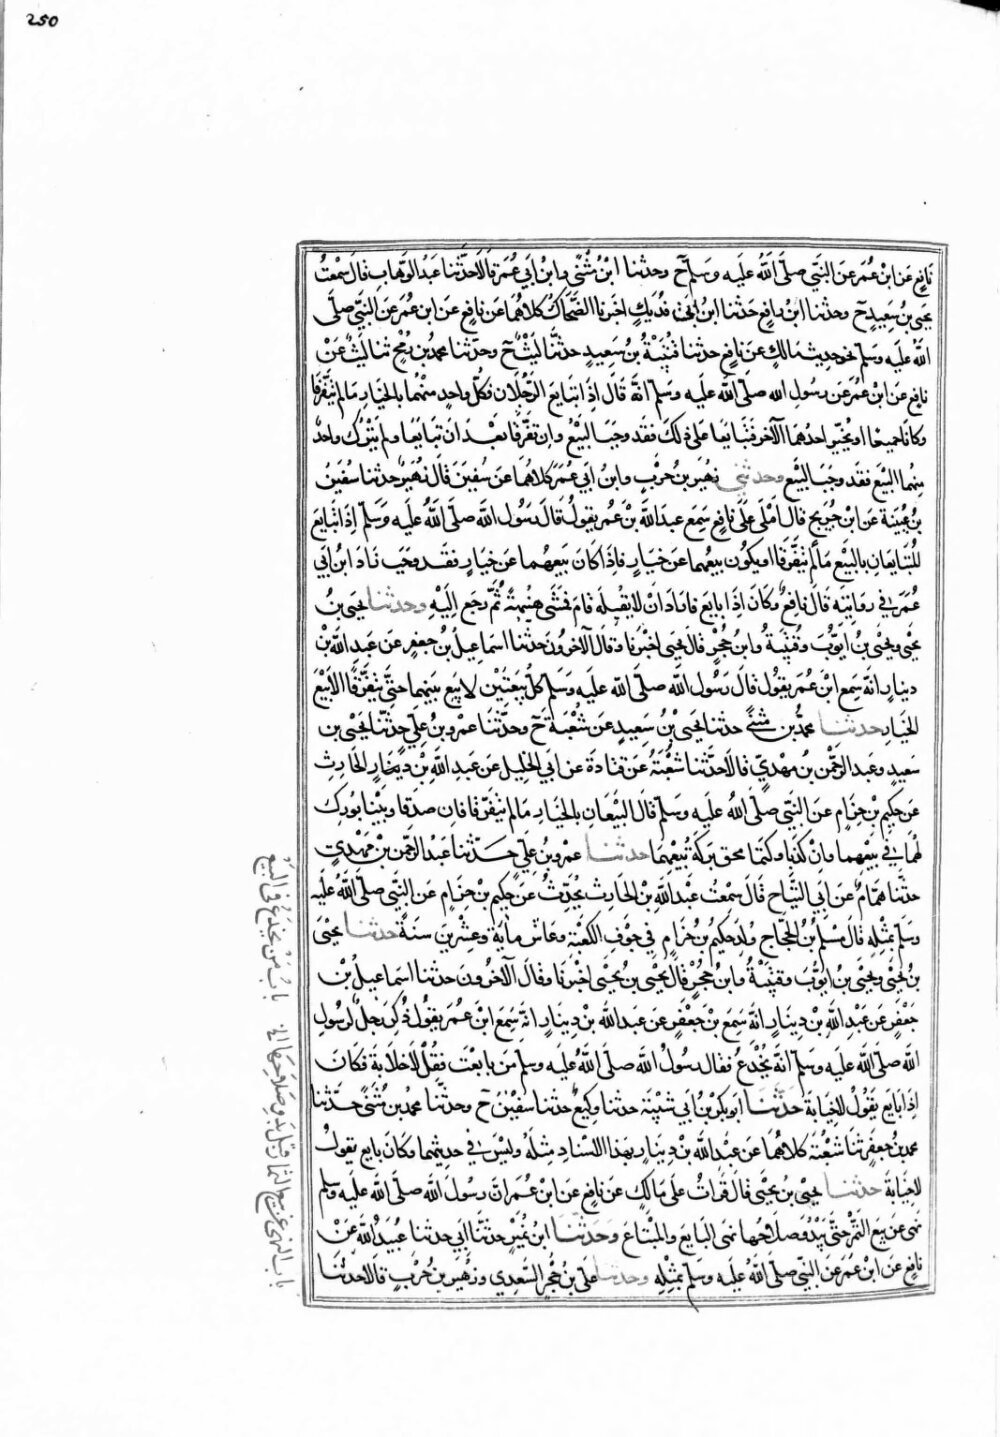 250
نافع عن ابن عمر عن النبي صلى الله عليه وسلم ح وحدثنا ابن مثنى وابن ابي عمر قالا حدثنا عبد الوهاب قال سمعت
يحيى بن سعيد ح وحدثنا ابن رافع حدثنا ابن ابي فديك اخبرنا الضحاك كلاهما عن نافع عن ابن عمر عن النبي صلى
الله عليه وسلم نحو حديث مالك عن نافع حدثنا قتيبة بن سعيد حدثنا ليث ح وحدثنا محمد بن رمح ثنا ليث عن
نافع عن ابن عمر عن رسول الله صلى الله عليه وسلم انه قال اذا تبايع الرجلان فكل واحد منهما بالخيار ما لم يتفرقا
وكانا جميعا او يخير احدهما الآخر فتبايعا على ذلك فقد وجب البيع وان تفرقا بعد ان تبايعا ولم يترك واحد
منهما البيع فقد وجب البيع وحدثني زهير بن حرب وابن ابي عمر كلاهما عن سفين قال زهير حدثنا سفين
بن عيينة عن ابن جريج قال املى علي نافع سمع عبد الله بن عمر يقول قال رسول الله صلى الله عليه وسلم اذا تبايع
المتبايعان بالبيع ما لم يتفرقا او يكون بيعهما عن خيار فاذا كان بيعهما عن خيار فقد وجب زاد ابن ابي
عمر في روايته قال نافع وكان اذا بايع فاراد ان لا يقيله قام فمشى هنيهة ثم رجع اليه وحدثنا يحيى بن
يحيى ويحيى بن ايوب وقتيبة وابن حجر قال يحيى اخبرنا وقال الآخرون حدثنا اسماعيل بن جعفر عن عبد الله بن
دينار انه سمع ابن عمر يقول قال رسول الله صلى الله عليه وسلم كل بيعين لا بيع بينهما حتى يتفرقا الا بيع
الخيار حدثنا محمد بن مثنى حدثنا يحيى بن سعيد عن شعبة ح وحدثنا عمرو بن علي حدثنا يحيى بن
سعيد وعبد الرحمن بن مهدي قالا حدثنا شعبة عن قتادة عن ابي الخليل عن عبد الله بن الحارث
عن حكيم بن حزام عن النبي صلى الله عليه وسلم قال البيعان بالخيار ما لم يتفرقا فان صدقا وبينا بورك
لهما في بيعهما وان كذبا وكتما محق بركة بيعهما حدثنا عمرو بن علي حدثنا عبد الرحمن بن مهدي
حدثنا همام عن ابي التياح قال سمعت عبد الله بن الحارث يحدث عن حكيم بن حزام عن النبي صلى الله عليه
وسلم بمثله قال مسلم بن الحجاج ولد حكيم بن حزام في جوف الكعبة وعاش ماية وعشرين سنة حدثنا يحيى
بن يحيى ويحيى بن ايوب وقتيبة وابن حجر قال يحيى بن يحيى اخبرنا وقال الآخرون حدثنا اسماعيل بن
جعفر عن عبد الله بن دينار انه سمع بن جعفر عن عبد الله بن دينار انه سمع ابن عمر يقول ذكر رجل لرسول
الله صلى الله عليه وسلم انه يخدع فقال رسول الله صلى الله عليه وسلم من بايعت فقل لا خلابة فكان
اذا بايع يقول لا خيابة حدثنا ابو بكر بن ابي شيبة حدثنا وكيع حدثنا سفين ح وحدثنا محمد بن مثنى حدثنا
محمد بن جعفر ثنا شعبة كلاهما عن عبد الله بن دينار بهذا الاسناد مثله وليس في حديثهما وكان بايع يقول
لا خيابة حدثنا يحيى بن يحيى قال قرات على مالك عن نافع عن ابن عمر ان رسول الله صلى الله عليه وسلم
نهى عن بيع الثمر حتى يبدو صلاحها نهى البايع والمبتاع وحدثنا ابن نمير حدثنا ابي حدثنا عبيد الله عن
نافع عن ابن عمر عن النبي صلى الله عليه وسلم بمثله وحدثنا علي بن حجر السعدي وزهير بن حرب قالا حدثنا
باب من يخدع في البيع
باب النهي عن بيع الثمار قبل بدو صلاحها الخ